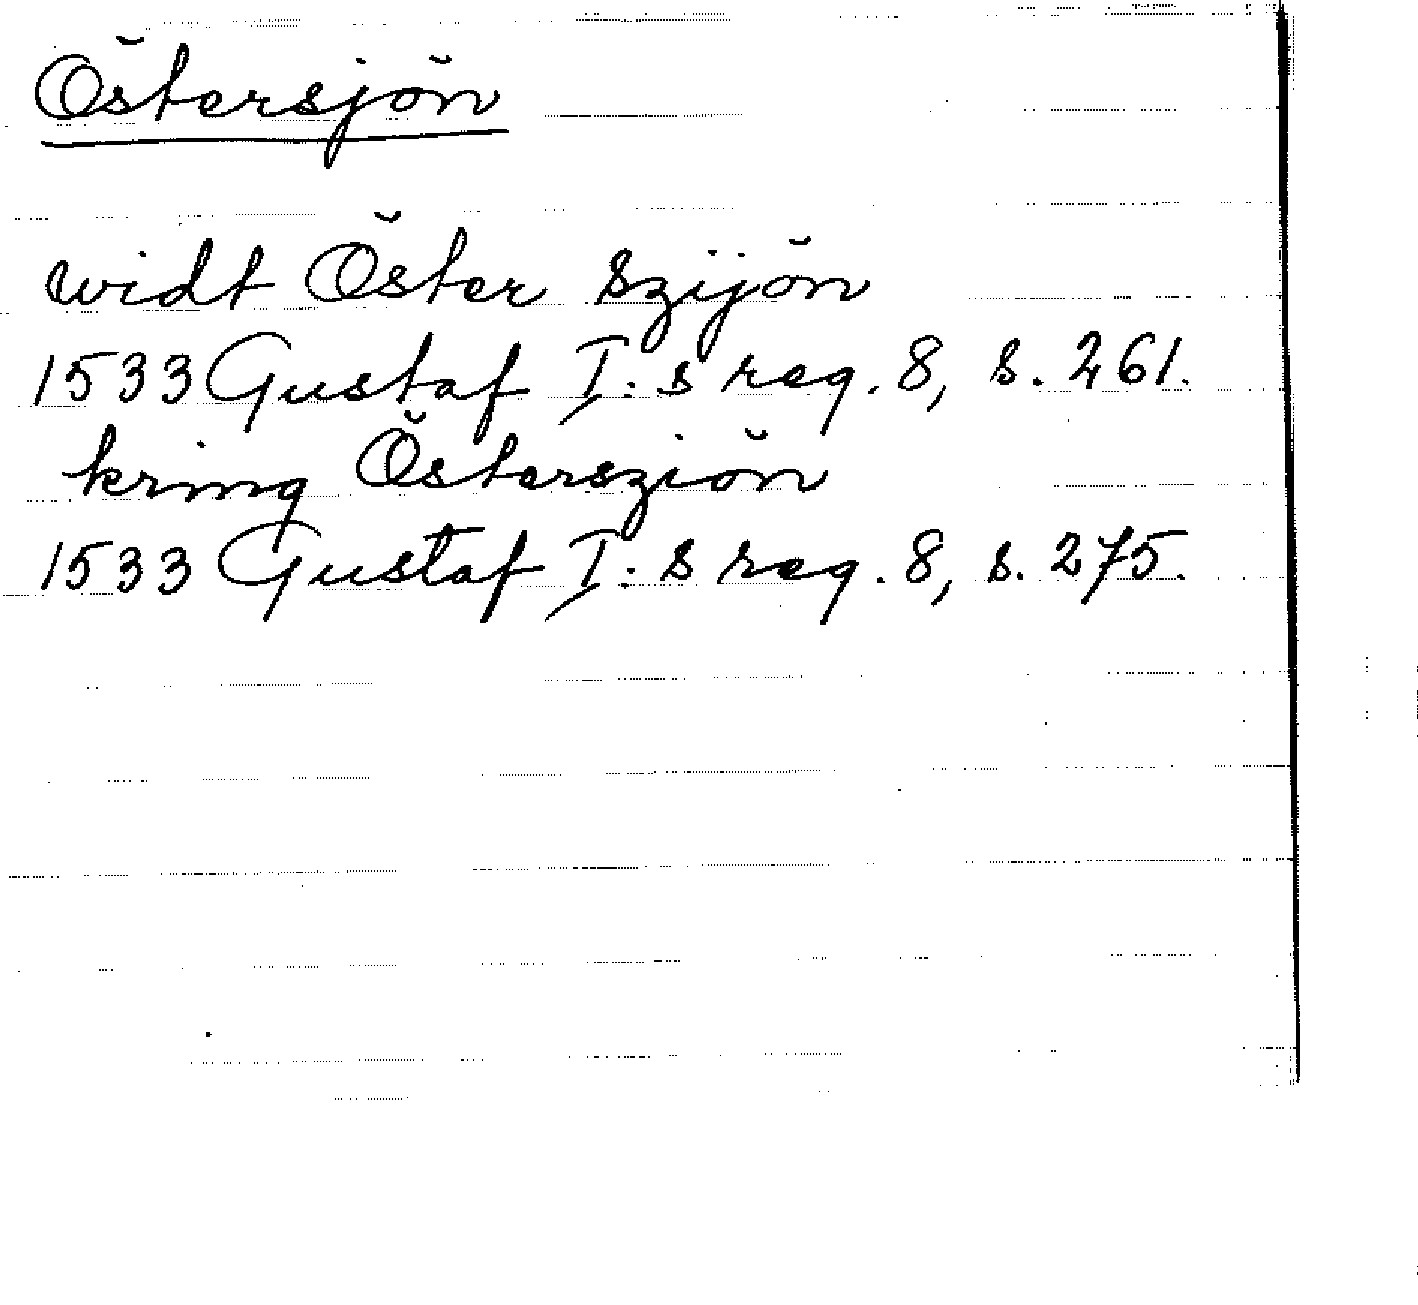 Östersjön
widt Öster szijön
1533 Gustaf I:s reg. 8, s. 261.
kring Östersziön
1533 Gustaf I:s reg. 8, s. 275.